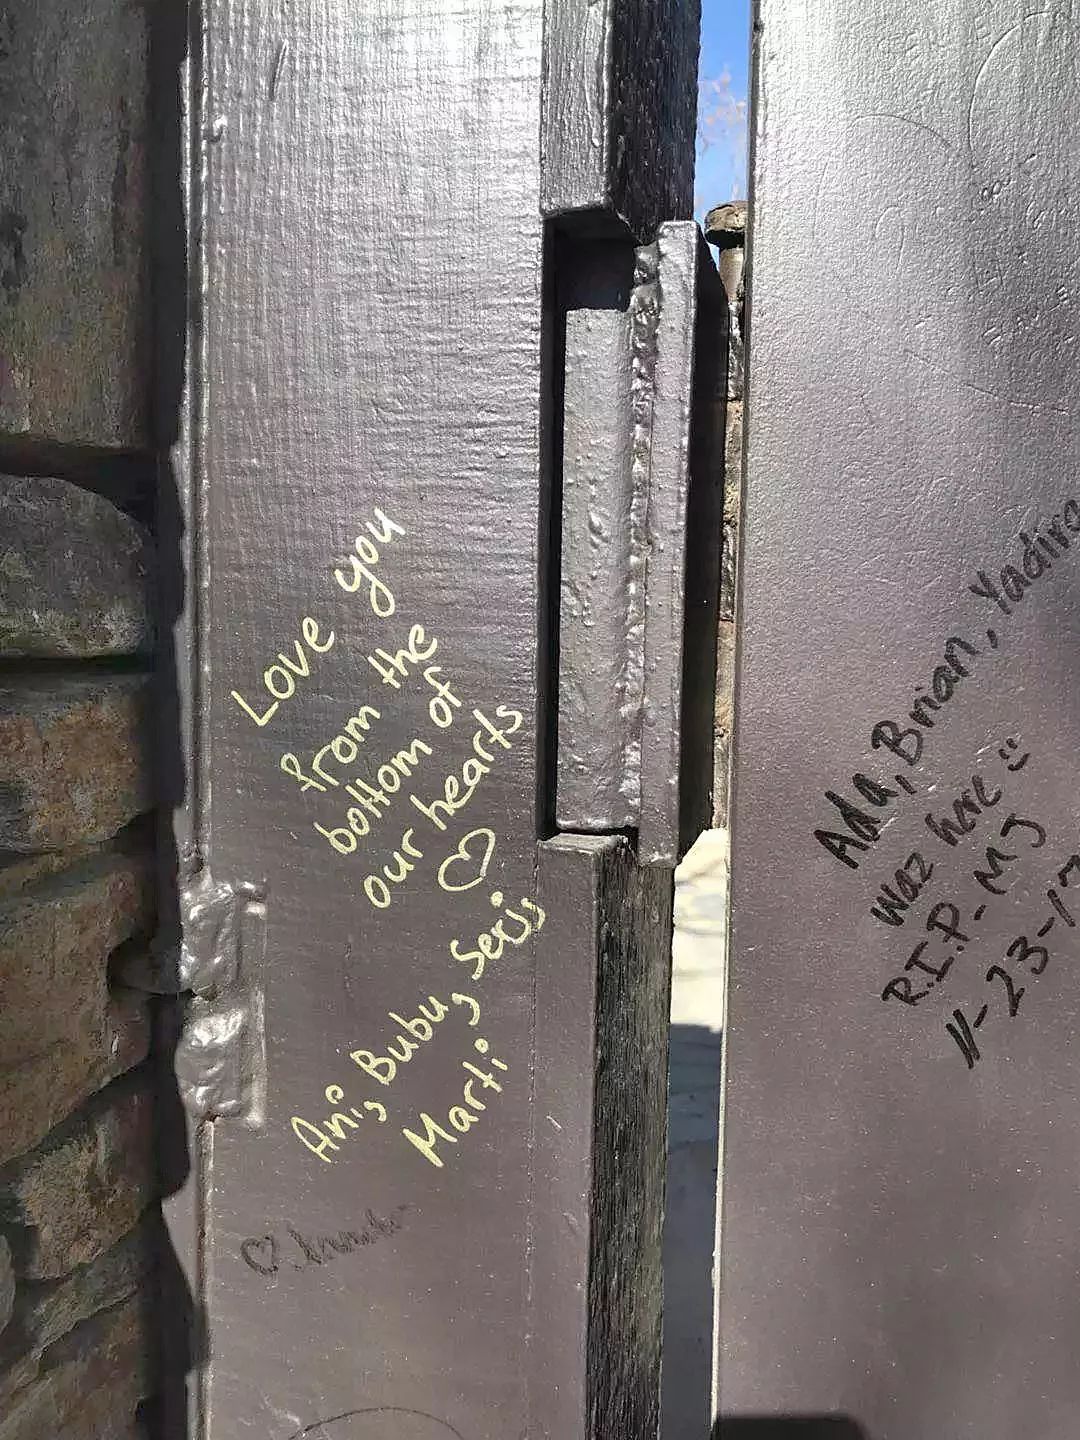 Love you
from the
bottom of
our hearts
♡
Ani, Bubu, Serj,
Marti
Ada, Brian, Yadira
waz here :)
R.I.P-MJ
11-23-17